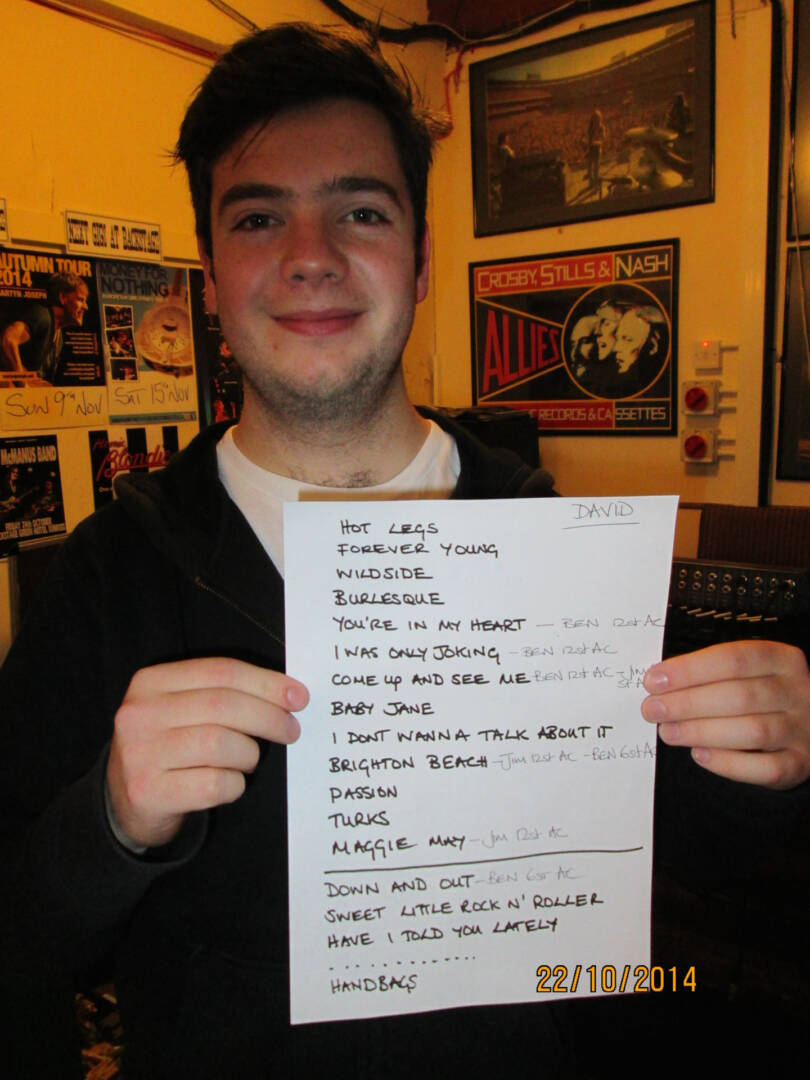 NEXT GIGS AT BACKSTAGE
AUTUMN TOUR
2014
MARTYN JOSEPH
MONEY FOR
NOTHING
SUN 9TH NOV
SAT 15TH NOV
McMANUS BAND
FRIDAY 24th OCTOBER
Blondie
CROSBY, STILLS & NASH
ALLIES
RECORDS & CASSETTES
DAVID
HOT LEGS
FOREVER YOUNG
WILDSIDE
BURLESQUE
YOU'RE IN MY HEART — BEN 12st AC
I WAS ONLY JOKING - BEN 12st AC
COME UP AND SEE ME - BEN 12st AC - JIM
BABY JANE
I DONT WANNA TALK ABOUT IT
BRIGHTON BEACH - JIM 12st AC - BEN 6st AC
PASSION
TURKS
MAGGIE MAY - JIM 12st AC
DOWN AND OUT - BEN 6st AC
SWEET LITTLE ROCK N' ROLLER
HAVE I TOLD YOU LATELY
.............
HANDBAGS
22/10/2014